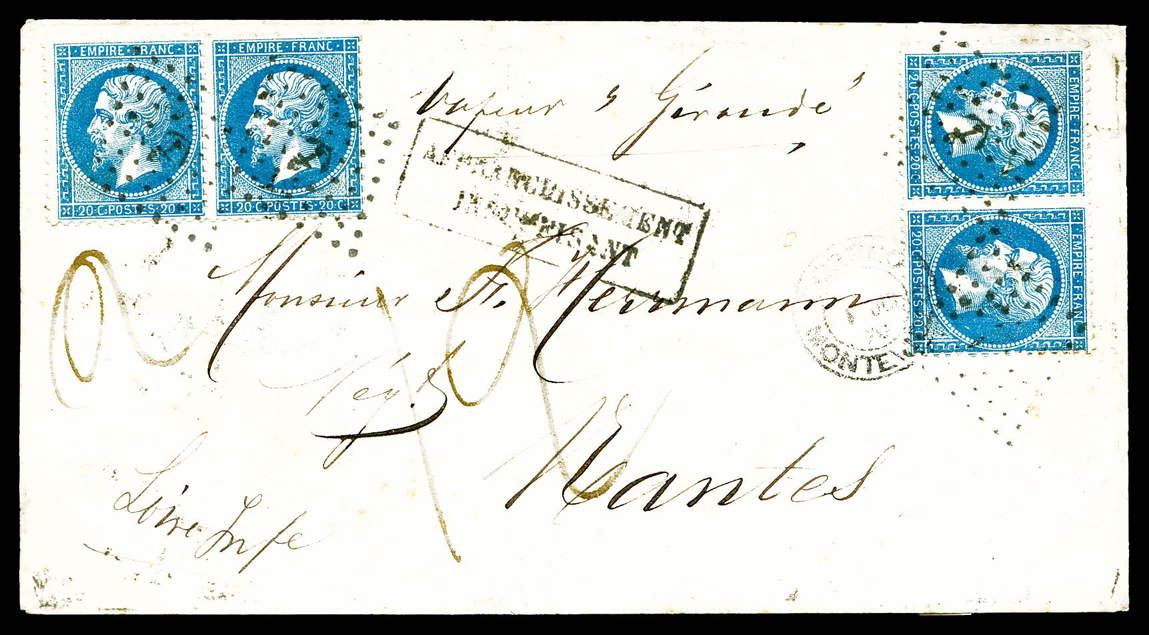 EMPIRE·FRANC· EMPIRE·FRANC·
20·C·POSTES·20·C· 20·C·POSTES·20·C·
Vapeur "Gironde"
EMPIRE·FRANC·
20·C·POSTES·20·C·
EMPIRE·FRANC·
20·C·POSTES·20·C·
AFFRANCHISSEMENT
INSUFFISANT
Monsieur F. Herrmann
MONTEV
Nég.t
Nantes
Loire Infe